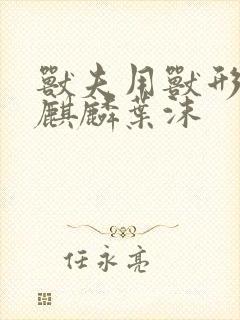 獸夫用獸形
麒麟葉沫
任永亮